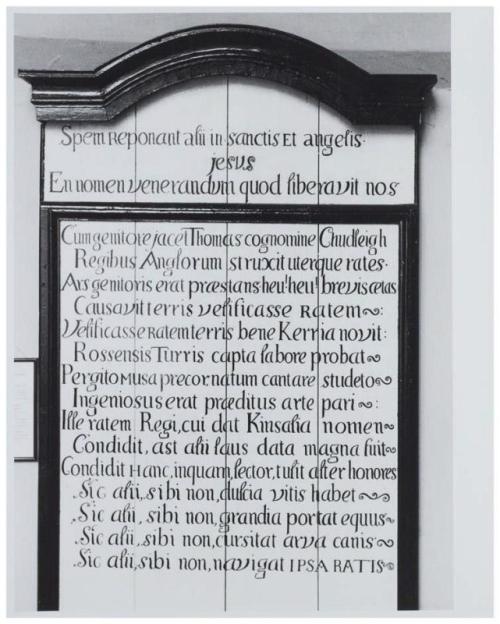 Spem Reponant alii in Sanctis Et angelis.
jesus
En nomen venerandum quod liberavit nos
Cum genitore jacet Thomas cognomine Chudleigh
Regibus Anglorum struxit uterque rates.
Ars genitoris erat præstans heu! heu! brevis ætas
Causavit terris velificasse Ratem:
Velificasse Ratem terris bene Kerria novit:
Rossensis Turris capta labore probat
Pergito Musa precor, natum cantare studeto
Ingeniosus erat præditus arte pari:
Ille ratem Regi, cui dat Kinsalia nomen
Condidit, ast alii laus data magna fuit
Condidit Hanc, inquam, lector, tulit alter honores
Sic alii, sibi non, dulcia vitis habet
Sic alii, sibi non, grandia portat equus
Sic alii, sibi non, cursitat arva canis
Sic alii, sibi non, navigat IPSA RATIS